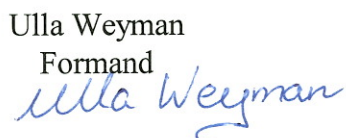 Ulla Weyman
Formand
Ulla Weyman